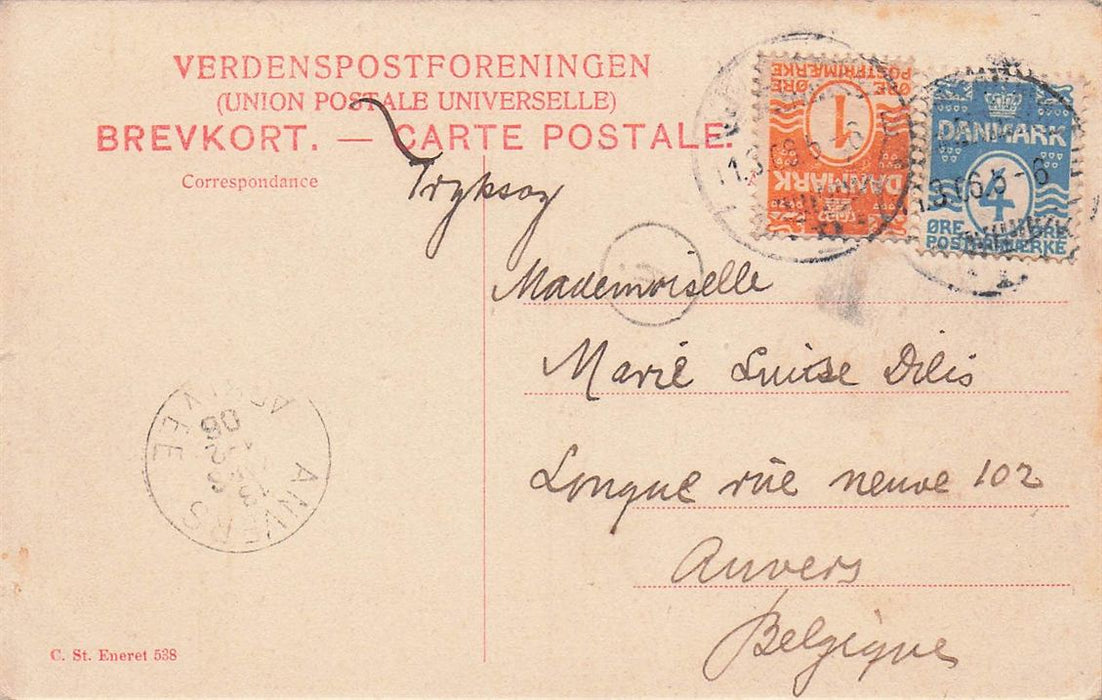 VERDENSPOSTFORENINGEN
(UNION POSTALE UNIVERSELLE)
BREVKORT. — CARTE POSTALE.
Correspondance
Tryksag
ØRE
POSTFRIMÆRKE
1
DANMARK
DANMARK
4
ØRE
POSTFRIMÆRKE
11.3.06.5-6
Mademoiselle
Marie Luise Dilis
Longue rue neuve 102
Anvers
Belgique
ANVERS
06
C. St. Eneret 538